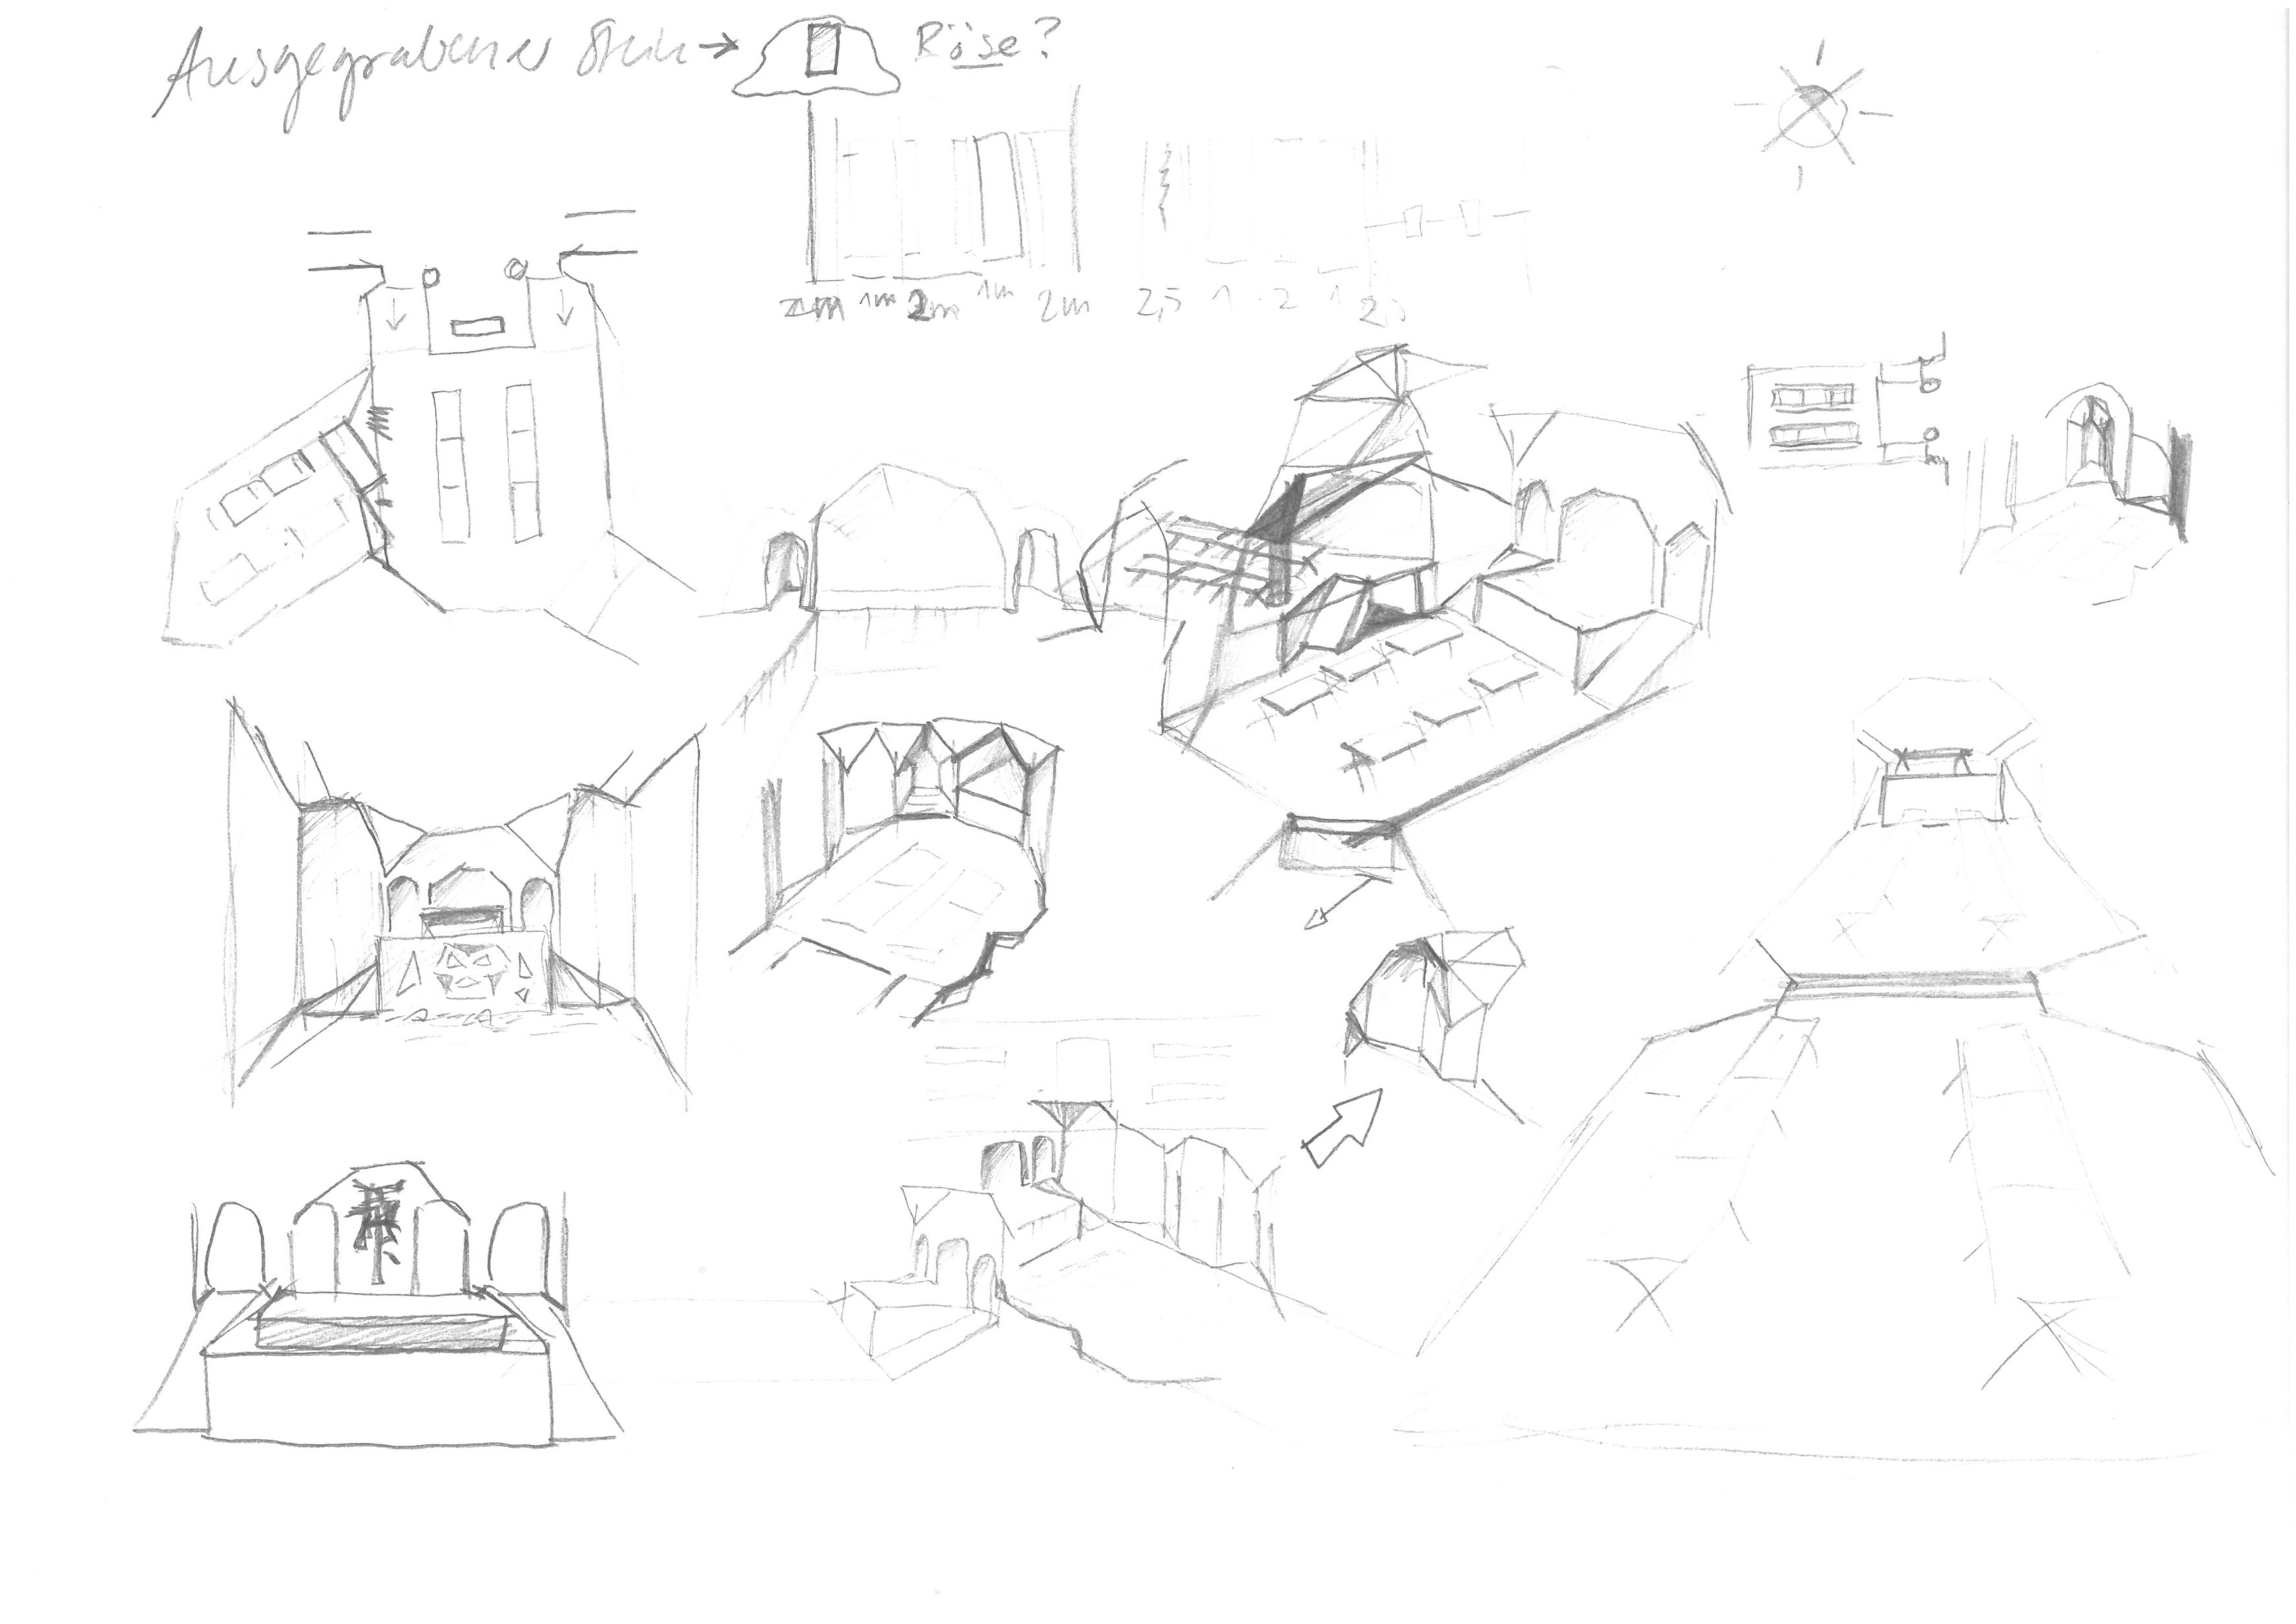 Ausgegrabener Stein → Röse?
2m 1m 2m 1m 2m 2,5 1 2 1 2,5